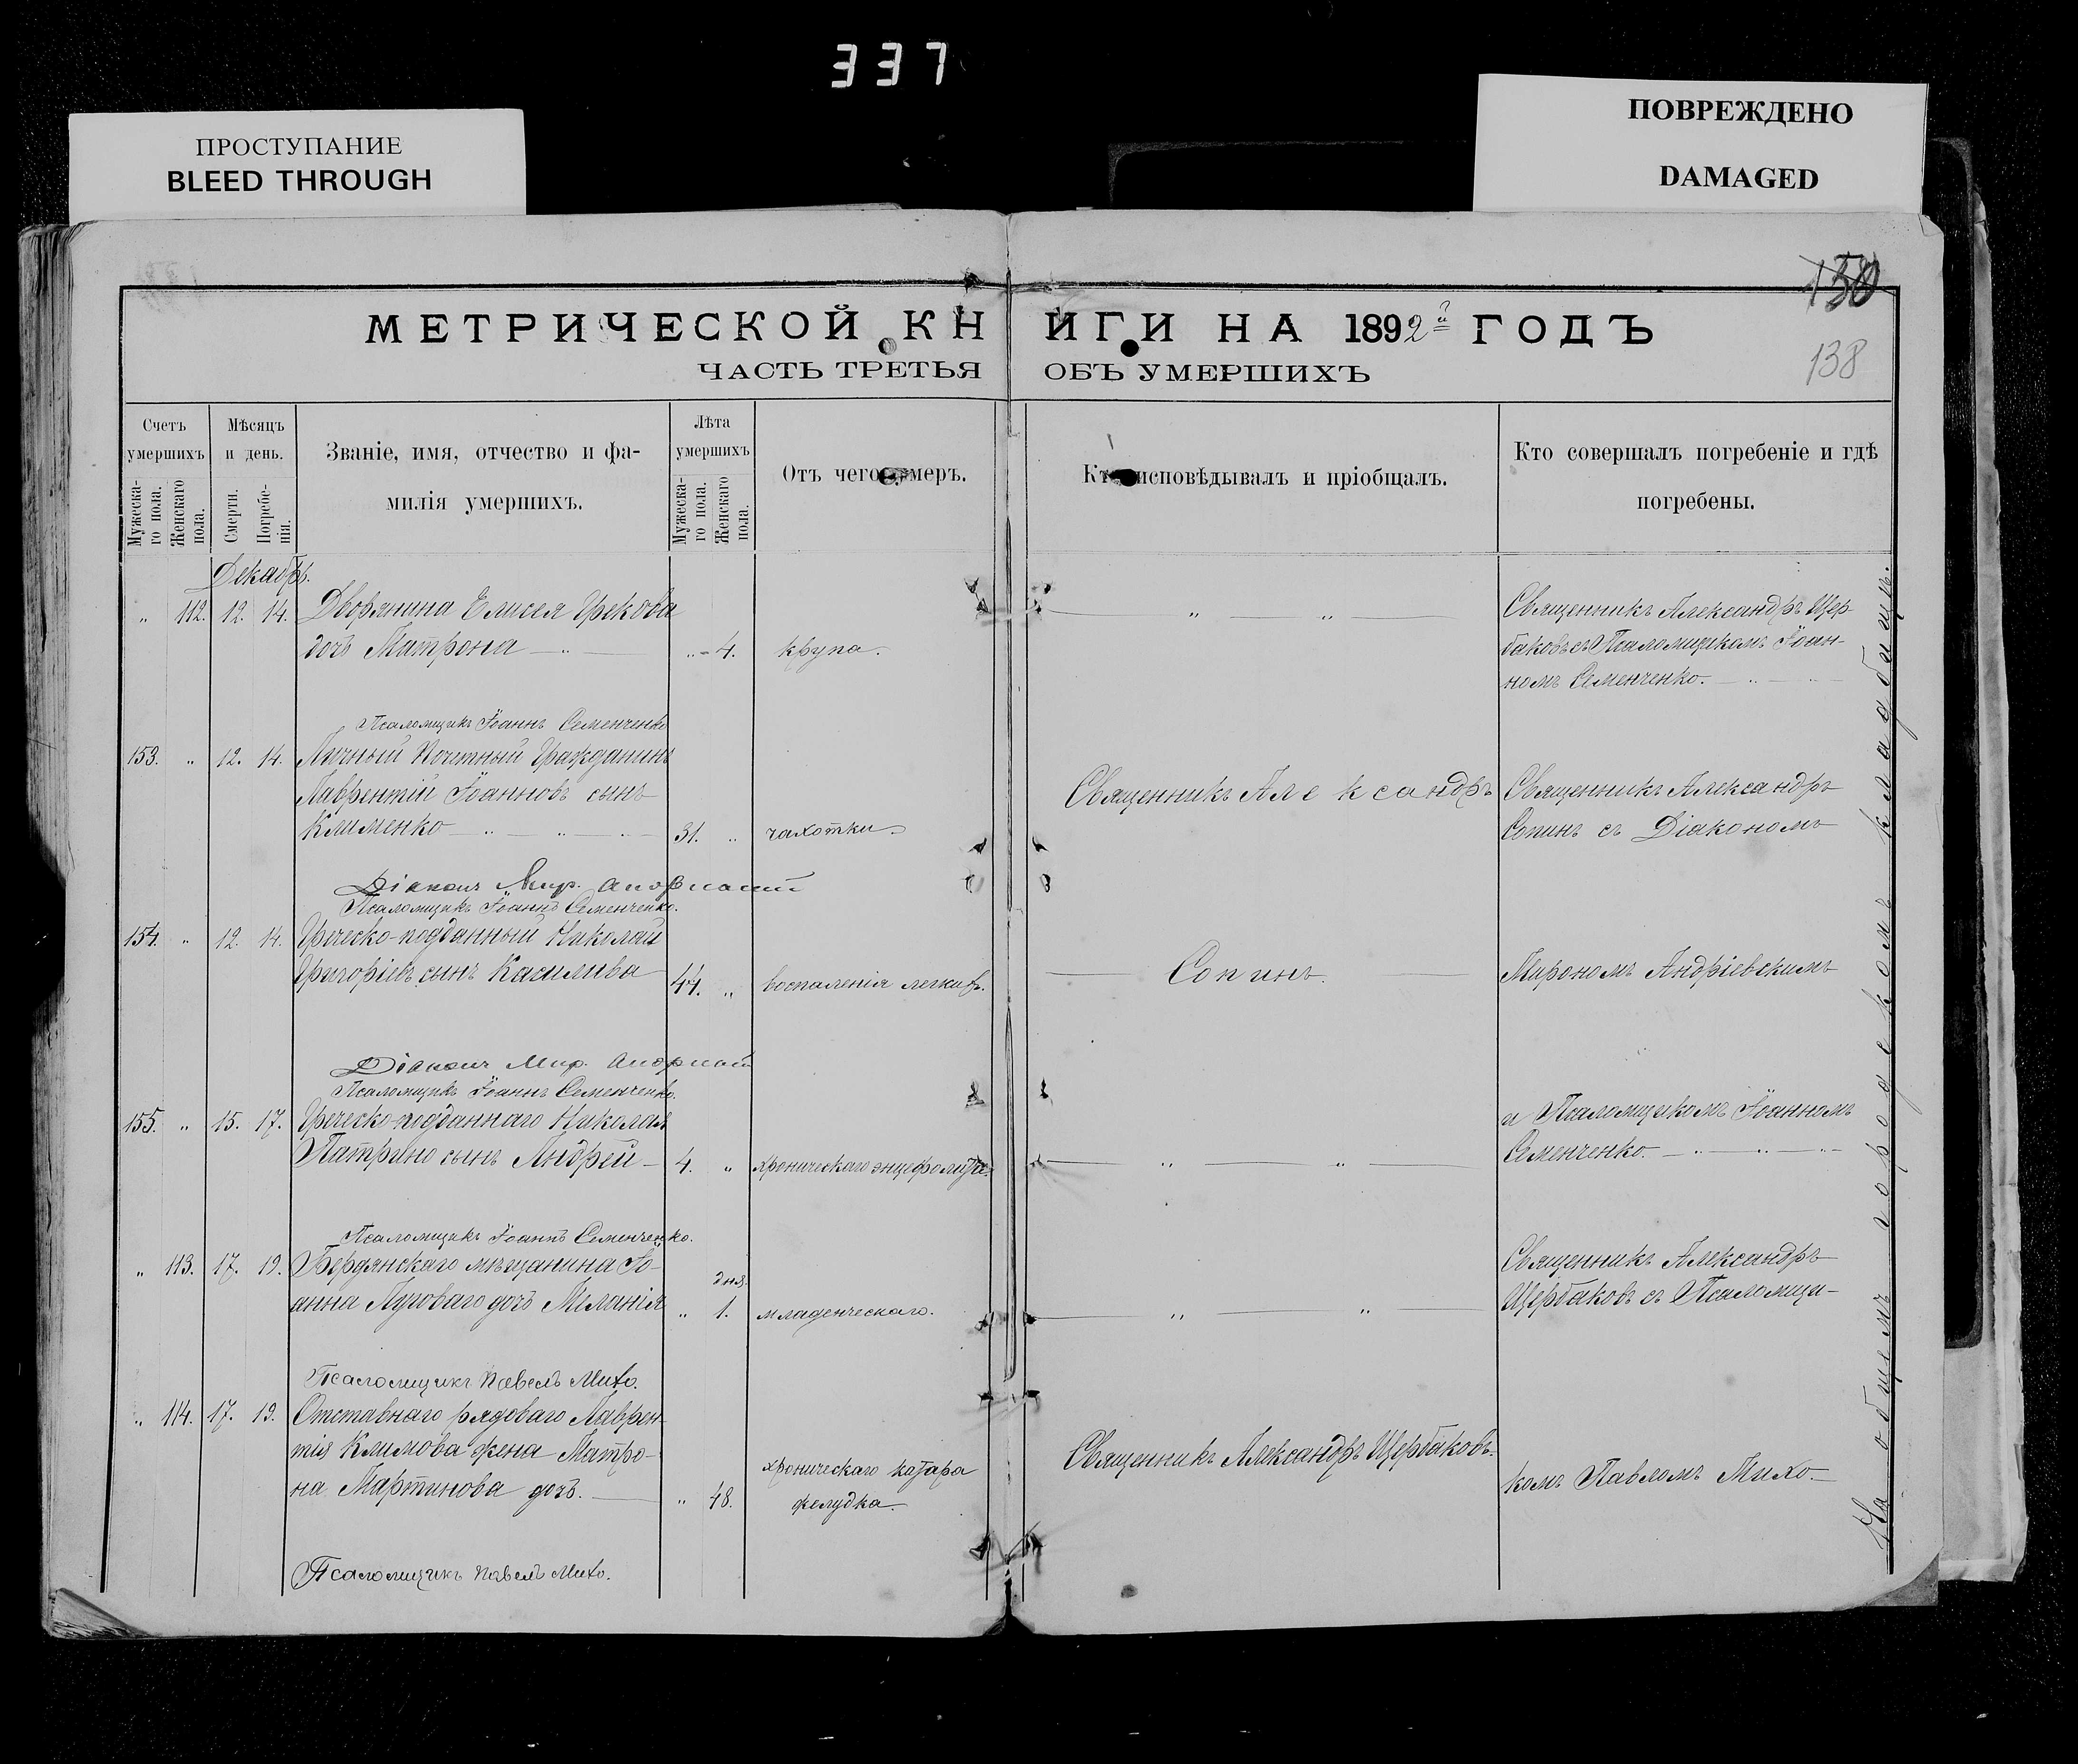 337
ПРОСТУПАНИЕ
BLEED THROUGH
ПОВРЕЖДЕНО
DAMAGED
150
138
МЕТРИЧЕСКОЙ КНИГИ НА 1892й ГОДЪ
ЧАСТЬ ТРЕТЬЯ ОБЪ УМЕРШИХЪ
Счетъ умершихъ
Мужеска-го пола.
Женскаго пола.
Мѣсяцъ и день.
Смерти.
Погребе-нія.
Званіе, имя, отчество и фа-
милія умершихъ.
Лѣта умершихъ
Мужеска-го пола.
Женскаго пола.
Отъ чего умеръ.
Кто исповѣдывалъ и пріобщалъ.
Кто совершалъ погребеніе и гдѣ
погребены.
Декабрь.
„ 112. 12. 14. Дворянина Елисея Грекова
дочь Матрона „ 4. крупа.
Священникъ Александръ Щер-
баковъ съ Псаломщикомъ Іоан-
номъ Семенченко.
Псаломщикъ Іоаннъ Семенченко
153. „ 12. 14. Личный Почетный Гражданинъ
Лаврентій Іоанновъ сынъ
Клименко 31. „ чахотки
Священникъ Александръ
Священникъ Александръ
Сопинъ съ Діакономъ
Діаконъ Мир.
Псаломщикъ Іоаннъ Семенченко.
154. „ 12. 14. Греческо-подданный Николай
Григоріевъ сынъ 44. „ воспаленія легкихъ.
Сопинъ.
Мирономъ Андріевскимъ
Діаконъ Мир.
Псаломщикъ Іоаннъ Семенченко.
155. „ 15. 17. Греческо-подданнаго Николая
Патрино сынъ Андрей 4. „ хроническаго
и Псаломщикомъ Іоанномъ
Семенченко.
Псаломщикъ Іоаннъ Семенченко.
„ 113. 17. 19. Бердянскаго мѣщанина Іо-
анна Луговаго дочь Меланія „ дня 1. младенческаго.
Священникъ Александръ
Щербаковъ съ Псаломщи-
Псаломщикъ Павелъ Михо.
„ 114. 17. 19. Отставнаго рядоваго Лаврен-
тія Климова жена Матро-
на Мартинова дочь. „ 48. хроническаго катара
желудка.
Священникъ Александръ Щербаковъ.
комъ Павломъ Михо.
Псаломщикъ Павелъ Михо.
На общемъ городскомъ кладбищѣ.